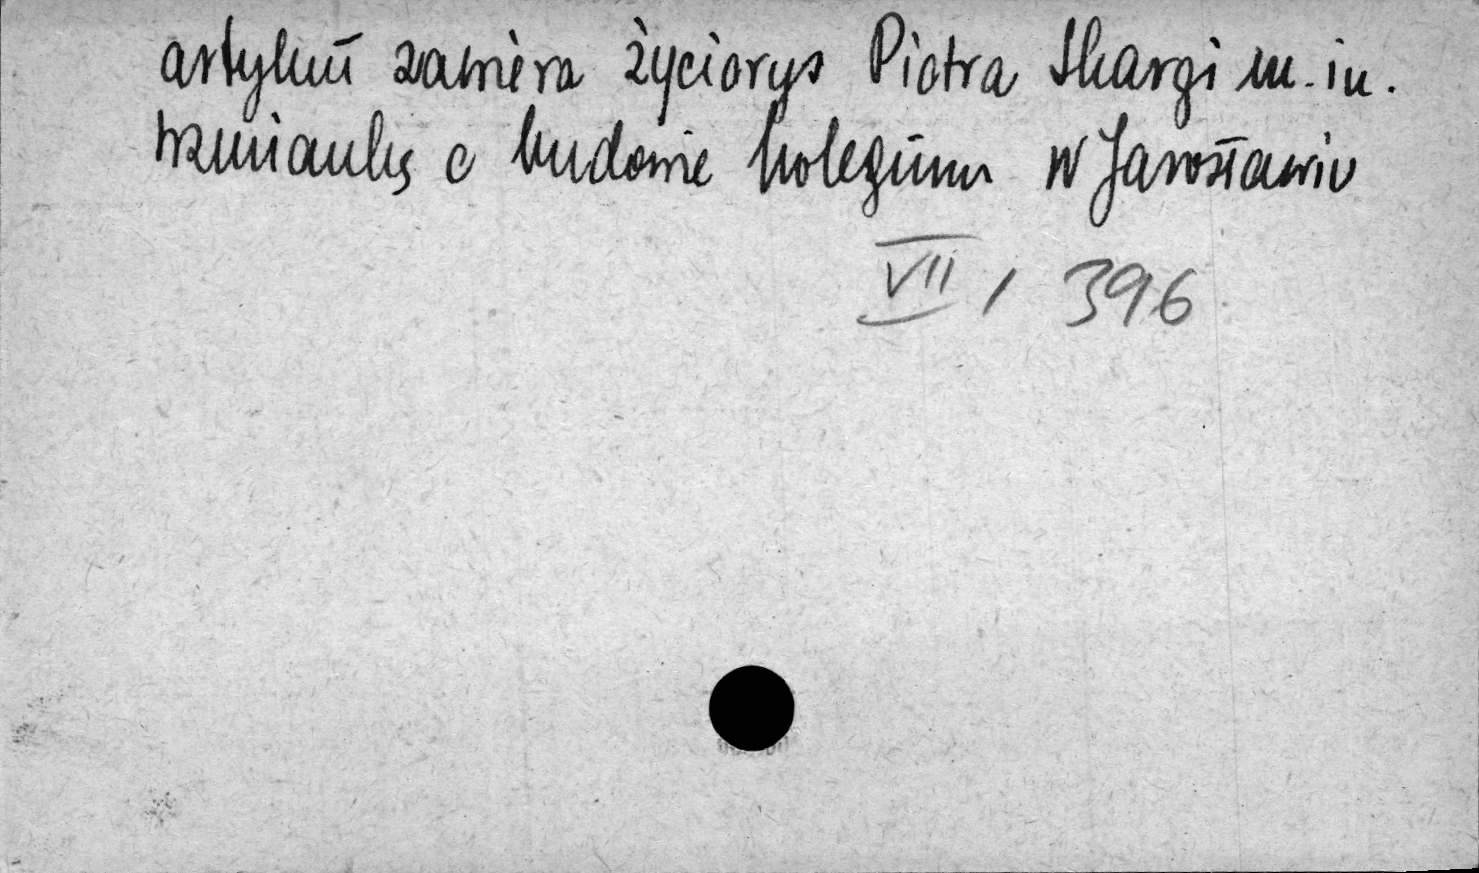 artykuł zawiera życiorys Piotra Skargi m.in.
wzmiankę o budowie kolegium w Jarosławiu
VII / 396